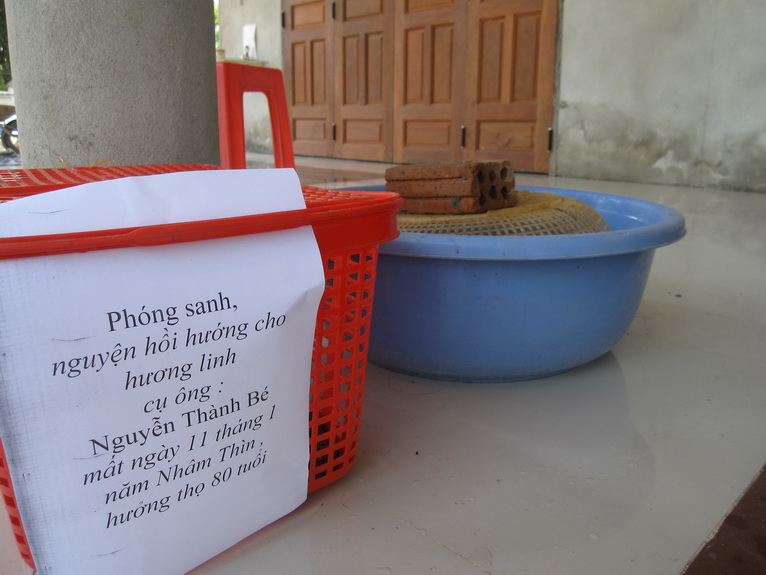 Phóng sanh,
nguyện hồi hướng cho
hương linh
cụ ông :
Nguyễn Thành Bé
mất ngày 11 tháng 1
năm Nhâm Thìn ,
hưởng thọ 80 tuổi